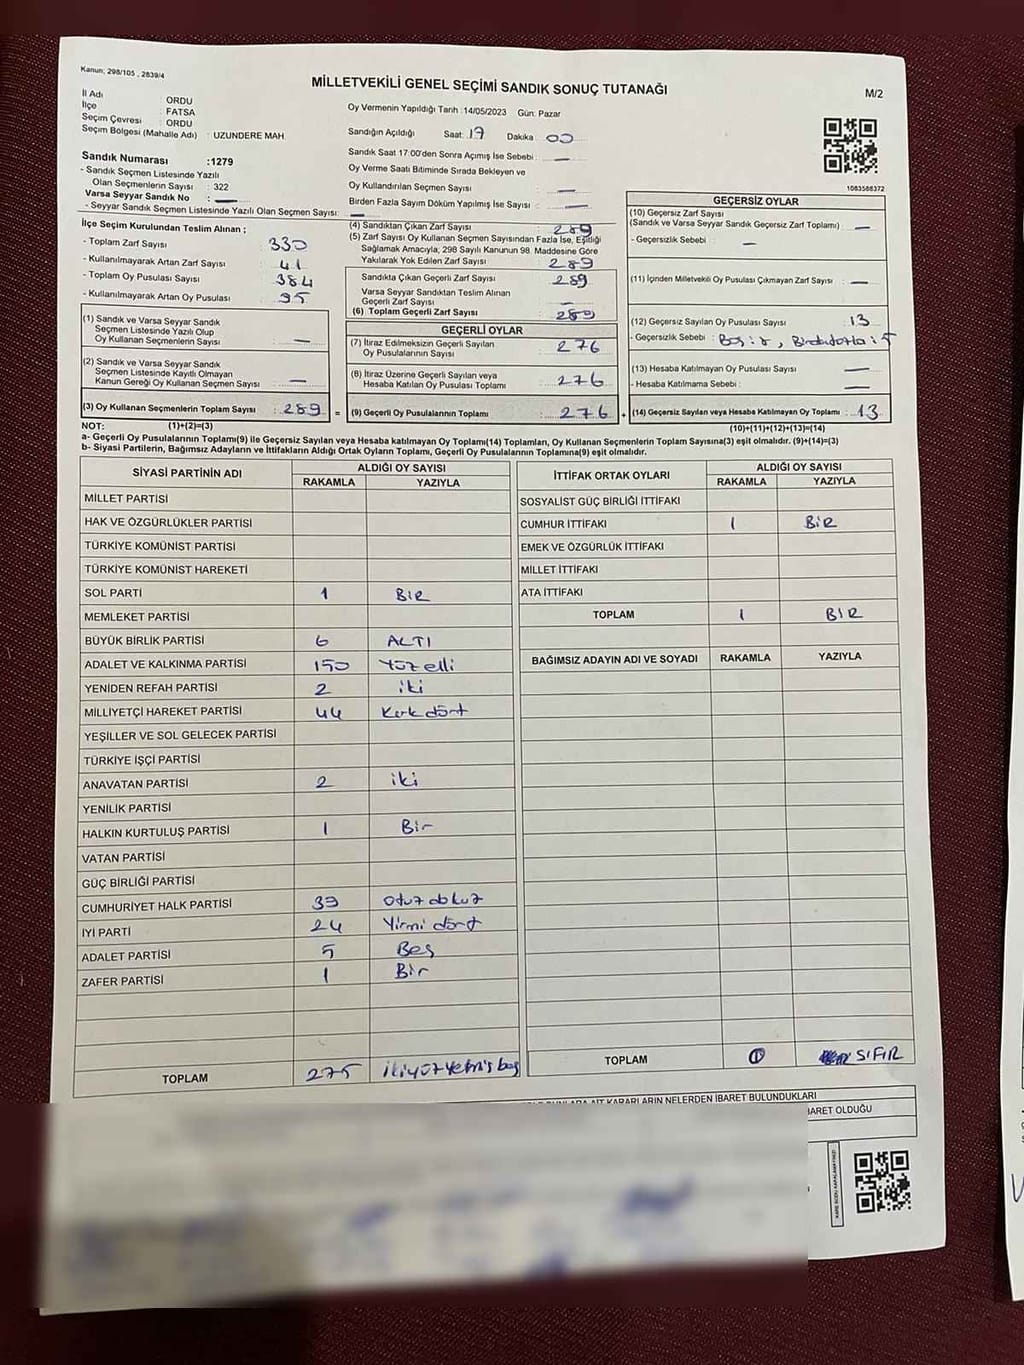 Kanun; 298/105 , 2839/4
MİLLETVEKİLİ GENEL SEÇİMİ SANDIK SONUÇ TUTANAĞI
M/2
İl Adı ORDU
İlçe FATSA
Seçim Çevresi : ORDU
Seçim Bölgesi (Mahalle Adı) : UZUNDERE MAH
Sandık Numarası :1279
- Sandık Seçmen Listesinde Yazılı
Olan Seçmenlerin Sayısı : 322
Varsa Seyyar Sandık No : —
- Seyyar Sandık Seçmen Listesinde Yazılı Olan Seçmen Sayısı: —
Oy Vermenin Yapıldığı Tarih :14/05/2023 Gün: Pazar
Sandığın Açıldığı Saat: 17 Dakika : 00
Sandık Saat 17:00'den Sonra Açımış İse Sebebi : —
Oy Verme Saati Bitiminde Sırada Bekleyen ve
Oy Kullandırılan Seçmen Sayısı : —
Birden Fazla Sayım Döküm Yapılmış İse Sayısı : —
1083588372
İlçe Seçim Kurulundan Teslim Alınan ;
- Toplam Zarf Sayısı : 330
- Kullanılmayarak Artan Zarf Sayısı : 41
- Toplam Oy Pusulası Sayısı : 384
- Kullanılmayarak Artan Oy Pusulası : 95
(1) Sandık ve Varsa Seyyar Sandık
Seçmen Listesinde Yazılı Olup
Oy Kullanan Seçmenlerin Sayısı : —
(2) Sandık ve Varsa Seyyar Sandık
Seçmen Listesinde Kayıtlı Olmayan
Kanun Gereği Oy Kullanan Seçmen Sayısı : —
(3) Oy Kullanan Seçmenlerin Toplam Sayısı : 289 =
(4) Sandıktan Çıkan Zarf Sayısı : 289
(5) Zarf Sayısı Oy Kullanan Seçmen Sayısından Fazla İse, Eşitliği
Sağlamak Amacıyla, 298 Sayılı Kanunun 98. Maddesine Göre
Yakılarak Yok Edilen Zarf Sayısı : 289
Sandıkta Çıkan Geçerli Zarf Sayısı : 289
Varsa Seyyar Sandıktan Teslim Alınan
Geçerli Zarf Sayısı : —
(6) Toplam Geçerli Zarf Sayısı : 289
GEÇERLİ OYLAR
(7) İtiraz Edilmeksizin Geçerli Sayılan
Oy Pusulalarının Sayısı : 276
(8) İtiraz Üzerine Geçerli Sayılan veya
Hesaba Katılan Oy Pusulası Toplamı : 276
(9) Geçerli Oy Pusulalarının Toplamı : 276 +
GEÇERSİZ OYLAR
(10) Geçersiz Zarf Sayısı
(Sandık ve Varsa Seyyar Sandık Geçersiz Zarf Toplamı) : —
- Geçersizlik Sebebi : —
(11) İçinden Milletvekili Oy Pusulası Çıkmayan Zarf Sayısı : —
(12) Geçersiz Sayılan Oy Pusulası Sayısı : 13
- Geçersizlik Sebebi :
(13) Hesaba Katılmayan Oy Pusulası Sayısı : —
- Hesaba Katılmama Sebebi : —
(14) Geçersiz Sayılan veya Hesaba Katılmayan Oy Toplamı : 13
NOT: (1)+(2)=(3) (10)+(11)+(12)+(13)=(14)
a- Geçerli Oy Pusulalarının Toplamı(9) ile Geçersiz Sayılan veya Hesaba katılmayan Oy Toplamı(14) Toplamları, Oy Kullanan Seçmenlerin Toplam Sayısına(3) eşit olmalıdır. (9)+(14)=(3)
b- Siyasi Partilerin, Bağımsız Adayların ve İttifakların Aldığı Ortak Oyların Toplamı, Geçerli Oy Pusulalarının Toplamına(9) eşit olmalıdır.
SİYASİ PARTİNİN ADI ALDIĞI OY SAYISI
RAKAMLA YAZIYLA
MİLLET PARTİSİ
HAK VE ÖZGÜRLÜKLER PARTİSİ
TÜRKİYE KOMÜNİST PARTİSİ
TÜRKİYE KOMÜNİST HAREKETİ
SOL PARTİ 1 BİR
MEMLEKET PARTİSİ
BÜYÜK BİRLİK PARTİSİ 6 ALTI
ADALET VE KALKINMA PARTİSİ 150 Yüz elli
YENİDEN REFAH PARTİSİ 2 iki
MİLLİYETÇİ HAREKET PARTİSİ 44 Kırk dört
YEŞİLLER VE SOL GELECEK PARTİSİ
TÜRKİYE İŞÇİ PARTİSİ
ANAVATAN PARTİSİ 2 iki
YENİLİK PARTİSİ
HALKIN KURTULUŞ PARTİSİ 1 Bir
VATAN PARTİSİ
GÜÇ BİRLİĞİ PARTİSİ
CUMHURİYET HALK PARTİSİ 39 Otuz dokuz
İYİ PARTİ 24 Yirmi dört
ADALET PARTİSİ 5 Beş
ZAFER PARTİSİ 1 Bir
TOPLAM 275 ikiyüzyetmiş beş
İTTİFAK ORTAK OYLARI ALDIĞI OY SAYISI
RAKAMLA YAZIYLA
SOSYALİST GÜÇ BİRLİĞİ İTTİFAKI
CUMHUR İTTİFAKI 1 BİR
EMEK VE ÖZGÜRLÜK İTTİFAKI
MİLLET İTTİFAKI
ATA İTTİFAKI
TOPLAM 1 BİR
BAĞIMSIZ ADAYIN ADI VE SOYADI RAKAMLA YAZIYLA
TOPLAM 0 SIFIR
KARARLARIN NELERDEN İBARET BULUNDUKLARI
İBARET OLDUĞU